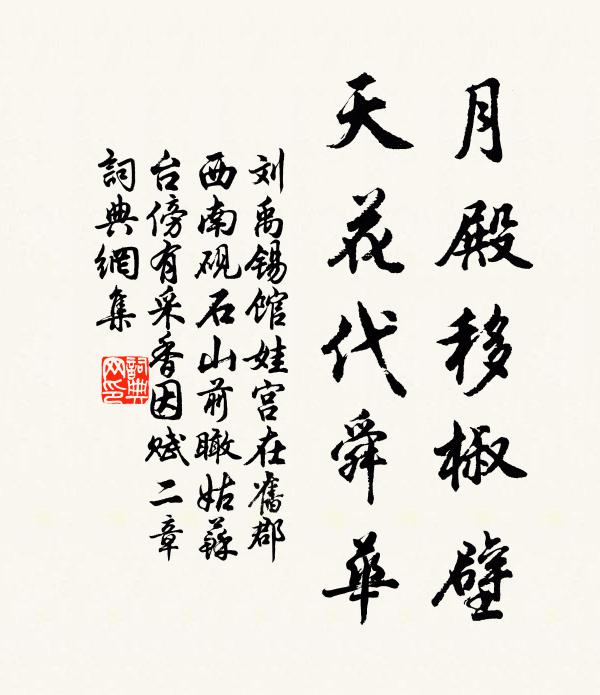 月殿移椒壁
天花代舜華
刘禹锡馆娃宫在旧郡
西南砚石山前瞰姑蘇
台傍有采香因赋二章
詞典網集
詞典
网印